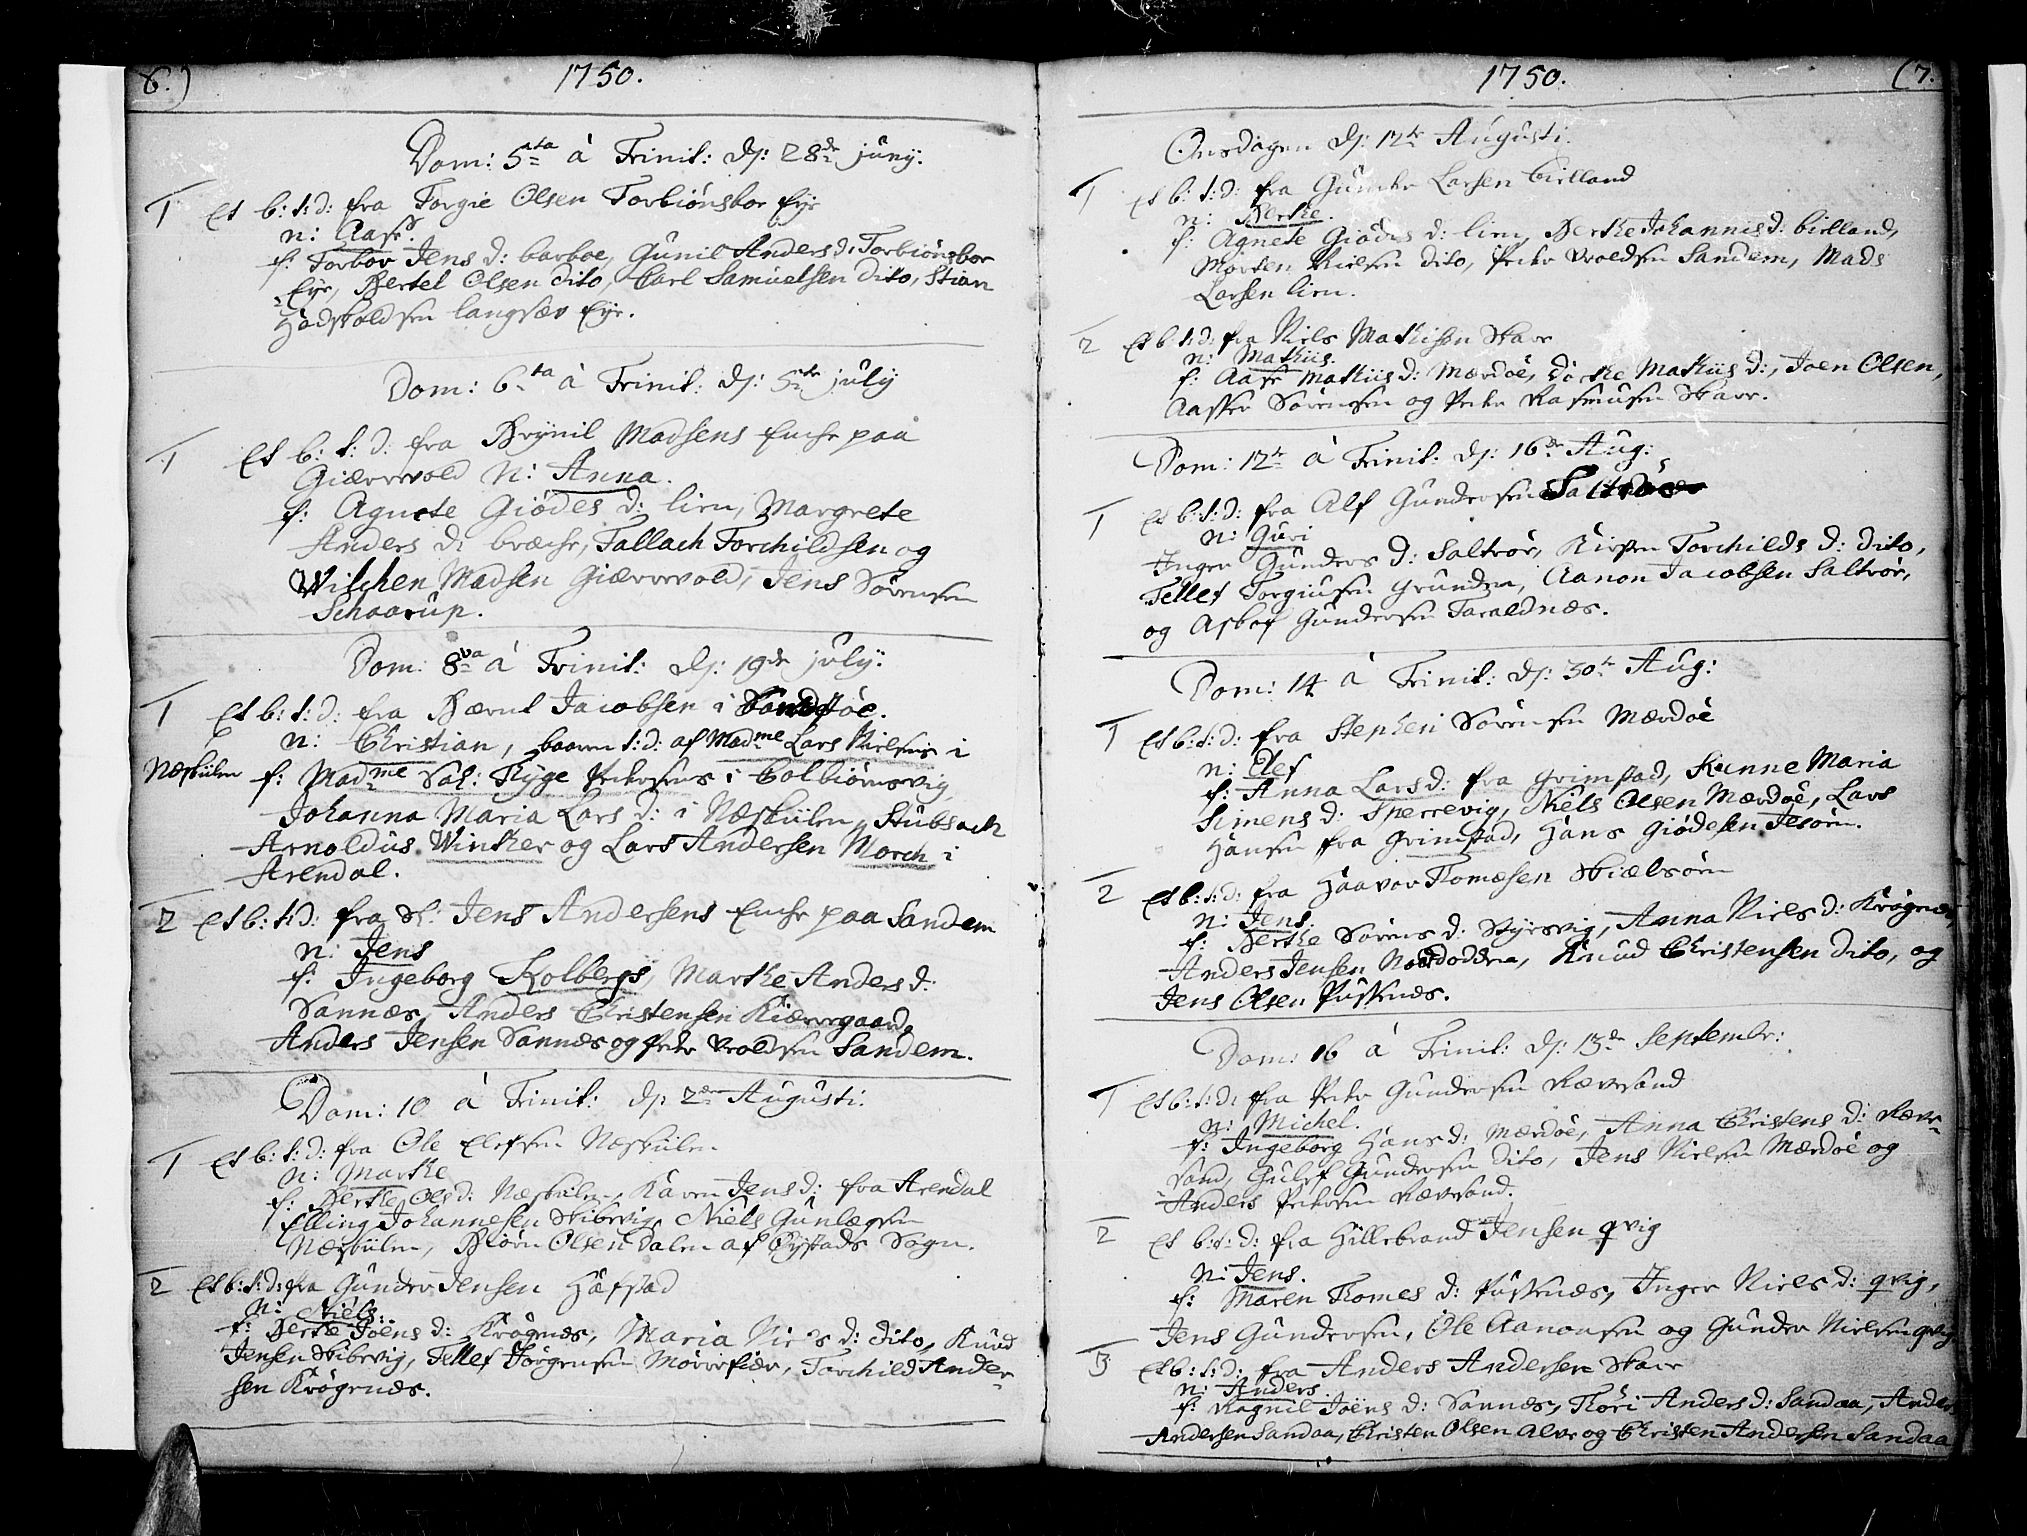 6.)
1750.
Dom: 5ta à Trinit: Dj: 28de junij.
1 Et b: t: d: fra Torgie Olsen Torbiønsbor Eye
n: Aase.
f: Torbor Jens d: barboe, Gunil Anders d: Torbiønsbor
Eye, Bertel Olsen dito, Carl Samuelsen dito, Stian
Hadskoldsen langsæv Eye.
Dom: 6ta à Trinit: Dj: 5te july
1 Et b: t: d: fra Brynil Madsens Enche paa
Giærrevold N: Anna.
f: Agnete Giødes d: lien, Margrete
Anders d: bræche, Tallach Torchildsen og
Wilchen Madsen Giærrevold, Jens Sørensen
Schaarup.
Dom: 8va à Trinit: Dj: 19de july:
1 Et b: t: d: fra Bærnt Jacobsen i Sandstøe.
n: Christian, baaren t: d: af Madme Lars Nielsens i
Næskilen f: Madme Sal: Thyge Petersens i Colbiørnsvig
Johanna Maria Lars d: i Næskilen, Stubsach
Arnoldus Winther og Lars Andersen Morch i
Arendal.
2 Et b: t: d: fra Sl: Jens Andersens Enche paa Sandem
n: Jens
f: Ingeborg Kolbergs, Marthe Anders d:
Sannæs, Anders Christensen Kiærregaard,
Anders Jensen Sannæs og Peder Evoldsen Sandem.
Dom: 10 à Trinit: Dj: 2den Augusti.
1 Et b: t: d: fra Ole Elefsen Næskilen
n: Marthe
f: Berthe Ols d: Næskilen, Karen Jens d: fra Arendal
Elling Johannesen Skibevig, Niels Gunlægsen
Næskilen, Biørn Olsen Dalen af Øystads Sogn.
2 Et b: t: d: fra Gunder Jensen Hafstad
n: Niels.
f: Berthe Joens d: Krøgenæs, Maria Niels d: dito, Knud
Jensen Skibevig, Tellef Jørgensen Morrefiær, Torchild Ander-
sen Krøgenæs.
1750.
(7.
Onsdagen Dj: 12te Augusti.
1 Et b: t: d: fra Gunder Larsen bieland
n: Berthe.
f: Agnete Giødes d: lien, Berthe Johannis d: bieland,
Morten Nielsen dito, Peder Evoldsen Sandem, Mads
Larsen lien.
2 Et b: t: d: fra Niels Mathisen Skare
n: Mathiis.
f: Aase Mathiis d: Mærdøe, Dorthe Mathiis d:, Joen Olsen,
Aasker Sørensen og Peder Rasmusen Skare.
Dom: 12te à Trinit: Dj: 16de Aug:
1 Et b: t: d: fra Alf Gundersen Saltrøe
n: Guri
Inger Gunders d: Saltrør, Kirsten Torchilds d: dito,
Tellef Torgiusen Grunden, Aanon Jacobsen Saltrør,
og Asbøf Gundersen Taraldnæs.
Dom: 14 à Trinit: Dj: 30te Aug:
1 Et b: t: d: fra Stephen Sørensen Mærdøe
n: Elef
f: Anna Lars d: fra Grimstad, Sunne Maria
Simens d: Sperrevig, Niels Olsen Mærdøe, Lars
Hansen fra Grimstad, Hans Giødesen Jesøen.
2 Et b: t: d: fra Haavor Thomesen Skielsøen
n: Jens.
f: Berthe Sørens d: Styrsvig, Anna Niels d: Krøgenæs,
Anders Jensen Noododden, Knud Christensen dito, og
Jens Olsen Pusnæs.
Dom: 16 à Trinit: Dj: 13de Septembr:
1 Et b: t: d: fra Peder Gundersen Rævesand
n: Michel.
f: Ingeborg Hans d: Mærdøe, Anna Christens d: Ræve-
sand, Gulef Gundersen dito, Jens Nielsen Mærdøe og
Anders Pedersen Rævesand.
2 Et b: t: d: fra Hillebrand Jensen qvig
n: Jens.
f: Maren Thomes d: Pusnæs, Inger Niels d: qvig,
Jens Gundersen, Ole Aanonsen og Gunder Nielsen qvig
3 Et b: t: d: fra Anders Andersen Skare
n: Anders.
f: Ragnil Joens d: Sannæs, Thori Anders d: Sandaa, Anders
Andersen Sandaa, Christen Olsen Alve og Christen Andersen Sandaa